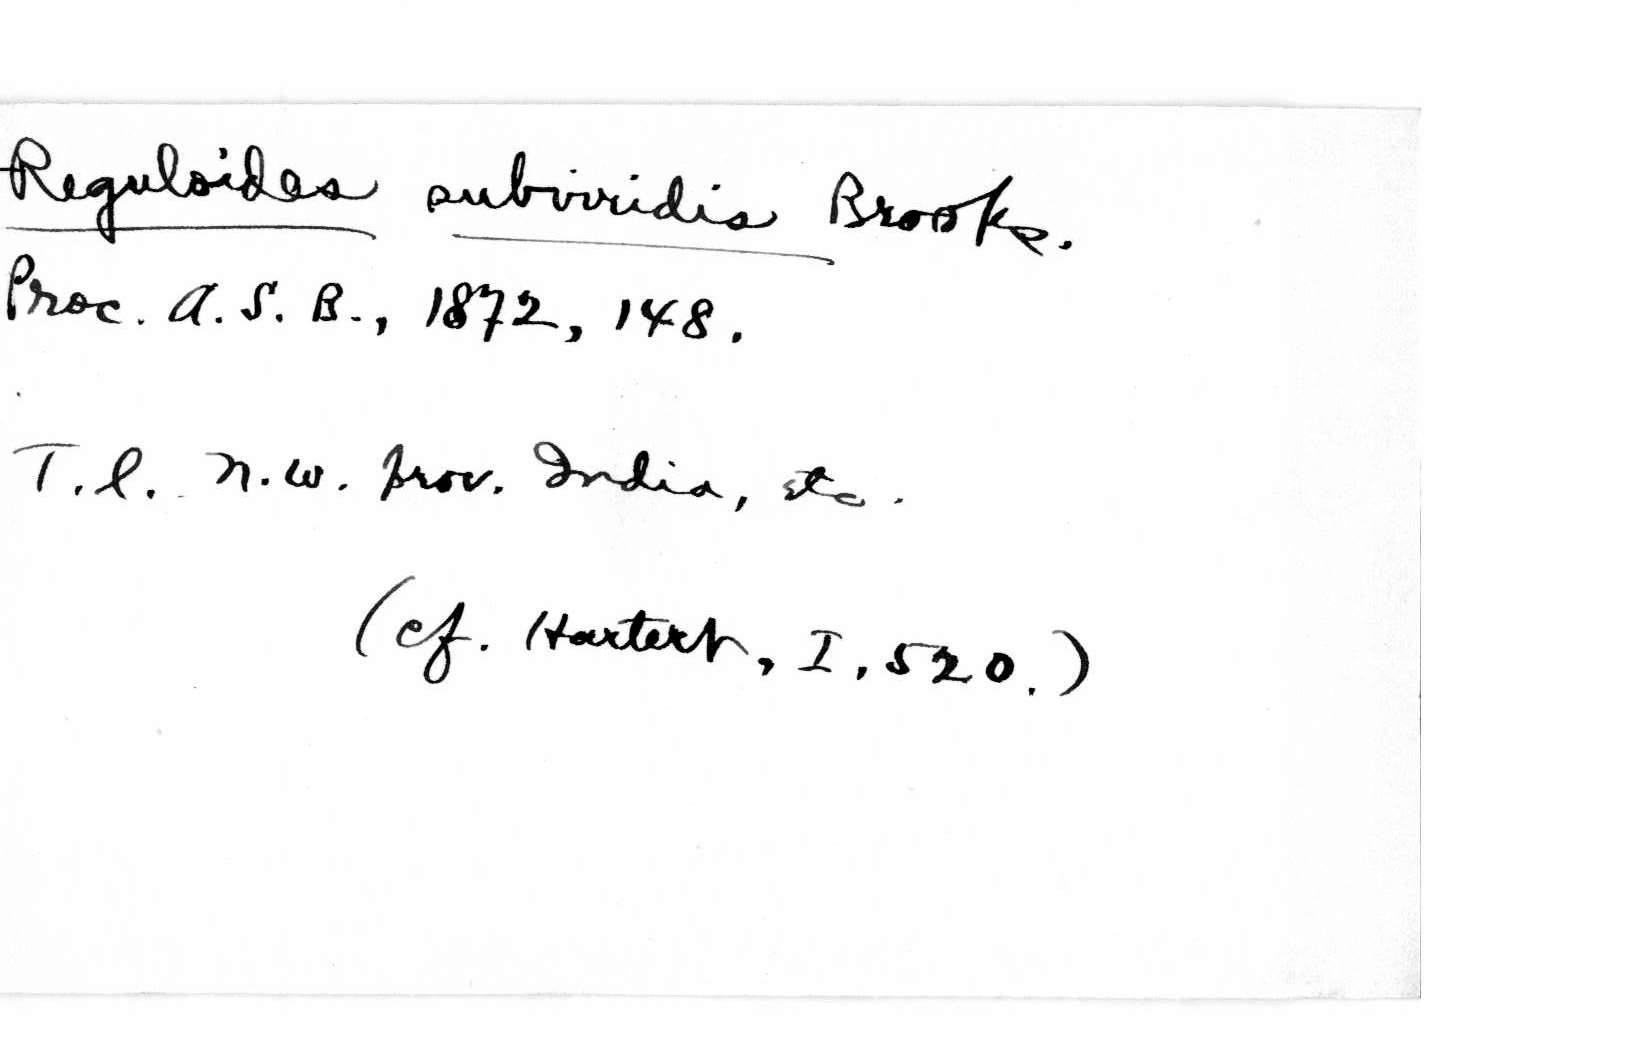 Reguloides subviridis Brooks.
Proc. A.S.B., 1872, 148.
T.l. N.W. prov. India, etc.
(cf. Hartert, I, 520.)